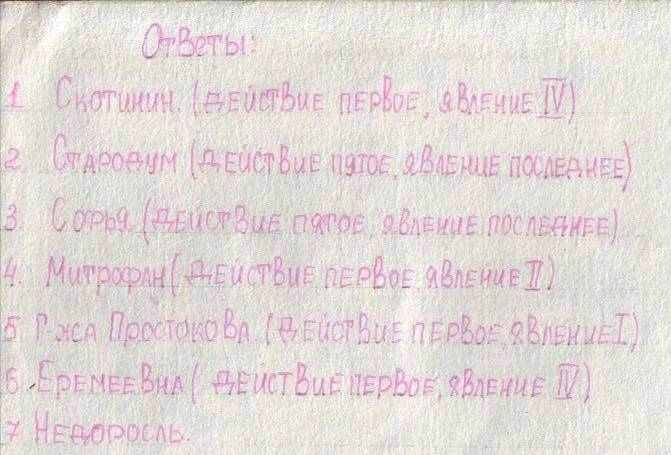 Ответы:
1 Скотинин. (действие первое, явление IV)
2. Стародум (действие пятое, явление последнее)
3. Софья. (действие пятое, явление последнее)
4. Митрофан (действие первое, явление II)
5 Г-жа Простокова. (действие первое, явление I)
6. Еремеевна (действие первое, явление IV)
7 Недоросль.